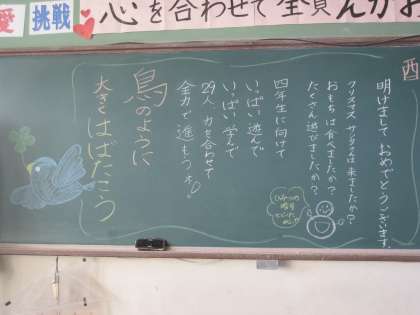 愛 挑戦
心を合わせて全員えがお
酉
明けまして おめでとうございます。
クリスマス サンタは来ましたか?
おもちは食べましたか?
たくさん遊びましたか?
四年生に向けて
いっぱい遊んで
いっぱい学んで
29人、力を合わせて
全力で進もうネ!
鳥のように
大きくはばたこう